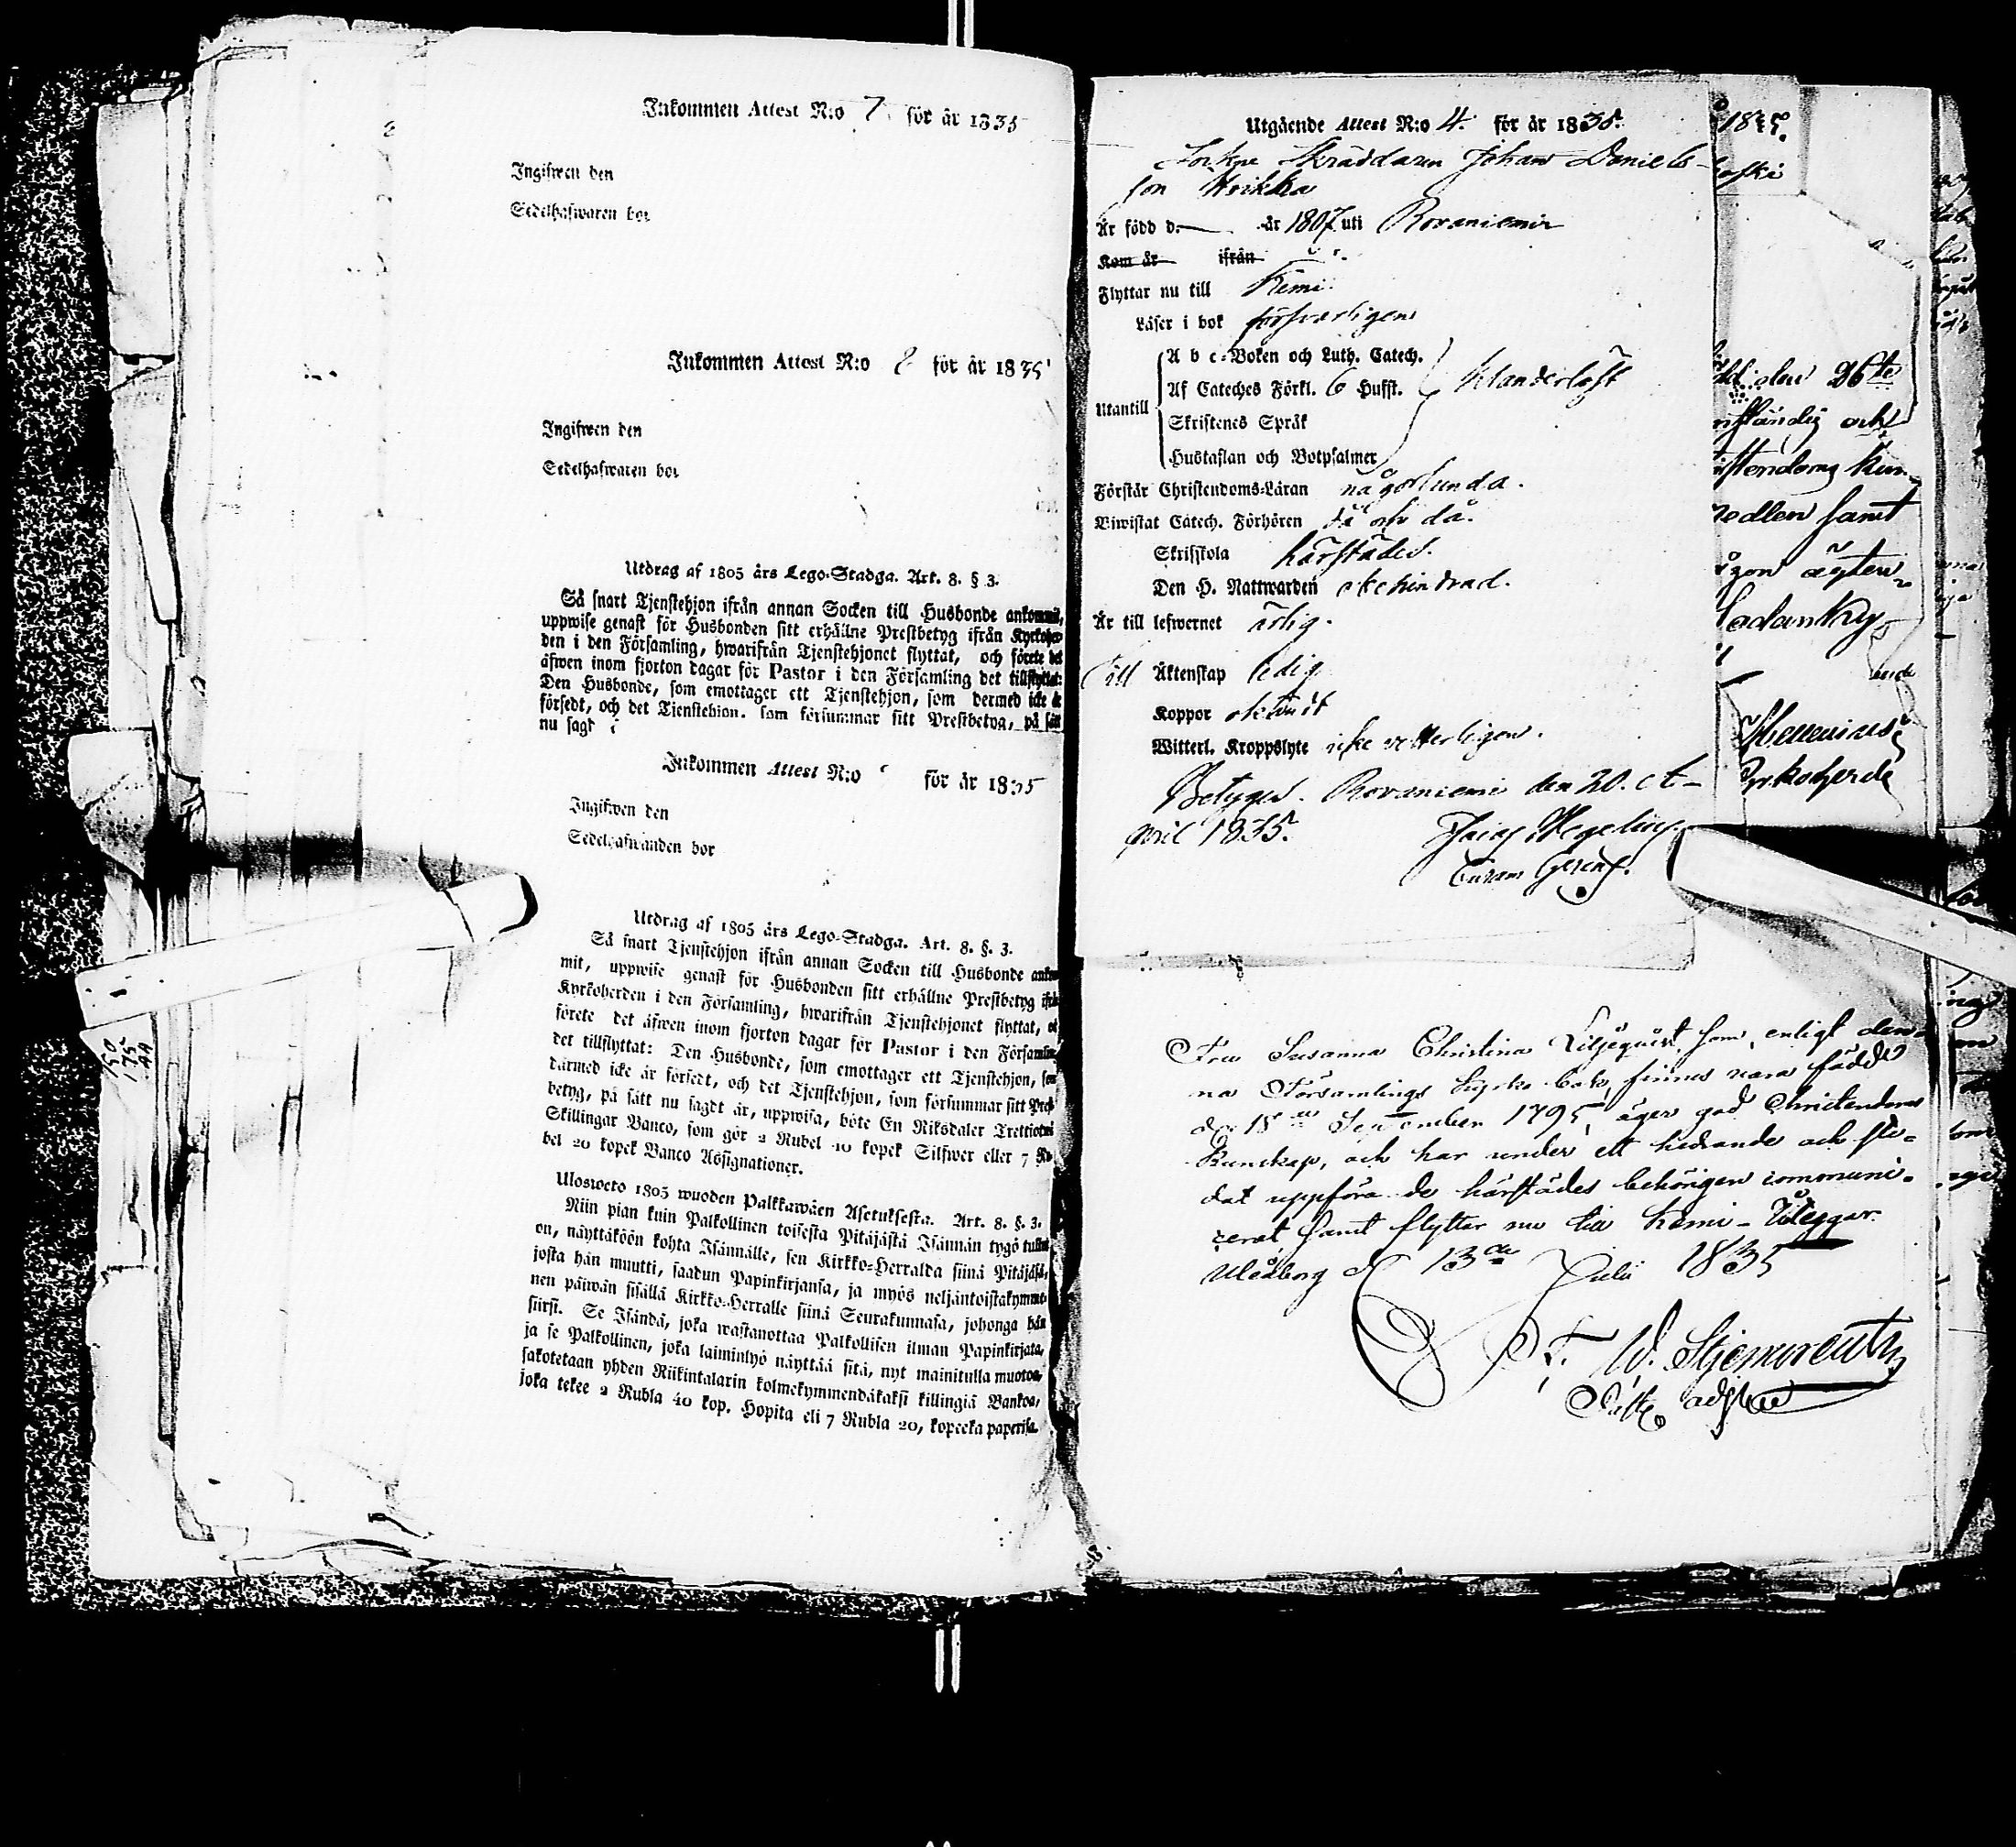 Inkommen Attest N:o 7 för år 1835
Ingifwen den
Sedelhafwaren bor
Inkommen Attest N:o 8 för år 1835
Ingifwen den
Sedelhafwaren bor
Utdrag af 1805 års Lego-Stadga. Art. 8. § 3.
Så snart Tjenstehjon ifrån annan Socken till Husbonde ankommit,
uppwise genast för Husbonden sitt erhållne Prestbetyg ifrån Kyrkoher-
den i den Församling, hwarifrån Tjenstehjonet flyttat, och förete det
äfwen inom fjorton dagar för Pastor i den Församling det tillflyttat:
Den Husbonde, som emottager ett Tjenstehjon, som dermed icke är
försedt, och det Tjenstehjon, som försummar sitt Prestbetyg, på sätt
nu sagt
Inkommen Attest N:o för år 1835
Ingifwen den
Sedelhafwanden bor
Utdrag af 1805 års Lego-Stadga. Art. 8. §. 3.
Så snart Tjenstehjon ifrån annan Socken till Husbonde ankom-
mit, uppwise genast för Husbonden sitt erhållne Prestbetyg ifrån
Kyrkoherden i den Församling, hwarifrån Tjenstehjonet flyttat,
förete det äfwen inom fjorton dagar för Pastor i den Församling
det tillflyttat: Den Husbonde, som emottager ett Tjenstehjon, som
därmed icke är försedt, och det Tjenstehjon, som försummar sitt Prest-
betyg, på sätt nu sagdt är, uppwisa, böte En Riksdaler Trettiotwå
Skillingar Banco, som gör 2 Rubel 40 kopek Silfwer eller 7 Ru-
bel 20 kopek Banco Assignationer.
Ulosweto 1805 wuoden Palkkawäen Asetuksesta. Art. 8. §. 3.
Niin pian kuin Palkollinen toisesta Pitäjästä Isännän tygö tullut
on, näyttäköön kohta Isännälle, sen Kirkko-Herralda siinä Pitäjäsä,
josta hän muutti, saadun Papinkirjansa, ja myös neljäntoistakymme-
nen päiwän sisällä Kirkko-Herralle siinä Seurakunnasa, johonga hän
siirsi. Se Isändä, joka wastanottaa Palkollisen ilman Papinkirjata,
ja se Palkollinen, joka laiminlyö näyttää sitä, nyt mainitulla muotoa,
sakotetaan yhden Riikintalarin kolmekymmendäkaksi killingiä Bankoa,
joka tekee 2 Rubla 40 kop. Hopita eli 7 Rubla 20, kopecka paperisa.
150
175
AA
Utgående Attest N:o 4. för år 1835.
Skräddaren Johan Daniels-
son
Är född d. — år 1807 uti Rovaniemi
Kom år ifrån
Flyttar nu till Kemi
Läser i bok försvarligen
Utantill
A b c-Boken och Luth. Catech.
Af Cateches Förkl. 6 Hufst. klanderlöst
Skriftenes Språk
Hustaflan och Botpsalmer
Förstår Christendoms-Läran någorlunda.
Biwistat Catech. Förhören då och då.
Skriftskola härstädes.
Den H. Nattwarden ohehindrad.
Är till lefwernet ärlig.
Till Äktenskap ledig
Koppor
Witterl. Kroppslyte icke vetterligen.
Betygas. Rovaniemi den 20. A-
pril 1835.
Curam Gerens.
1835.
den 26te
och
samt
Kyrkoherde
Fru Susanna Christina Liljequist, som, enligt den-
na Församlings kyrko bok, finnes vara född
d. 18de September 1795, äger god Christendoms
Kunskap, och har under ett hedrande och sto-
dat uppförande härstädes behörigen communi-
cerat samt flyttar nu till Kemi
Uleåborg d. 13de Julii 1835